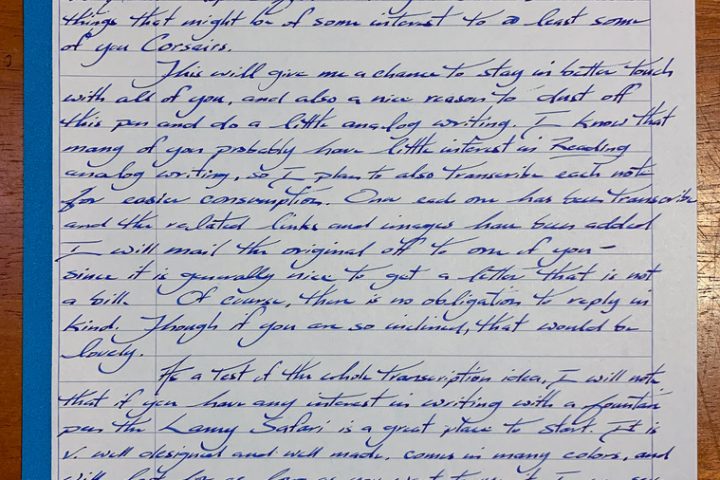 things that might be of some interest to a least some
of you Corsairs.
This will give me a chance to stay in better touch
with all of you, and also a nice reason to dust off
this pen and do a little analog writing. I know that
many of you probably have little interest in Reading
analog writing, so I plan to also transcribe each note
for easier consumption. Once each one has been transcribe
and the related links and images have been added
I will mail the original off to one of you –
since it is generally nice to get a letter that is not
a bill. Of course, there is no obligation to reply in
kind. Though if you are so inclined, that would be
lovely.
As a test of the whole transcription idea, I will note
that if you have any interest in writing with a fountain
pen the Lamy Safari is a great place to start. It is
v. well designed and well made, comes in many colors, and